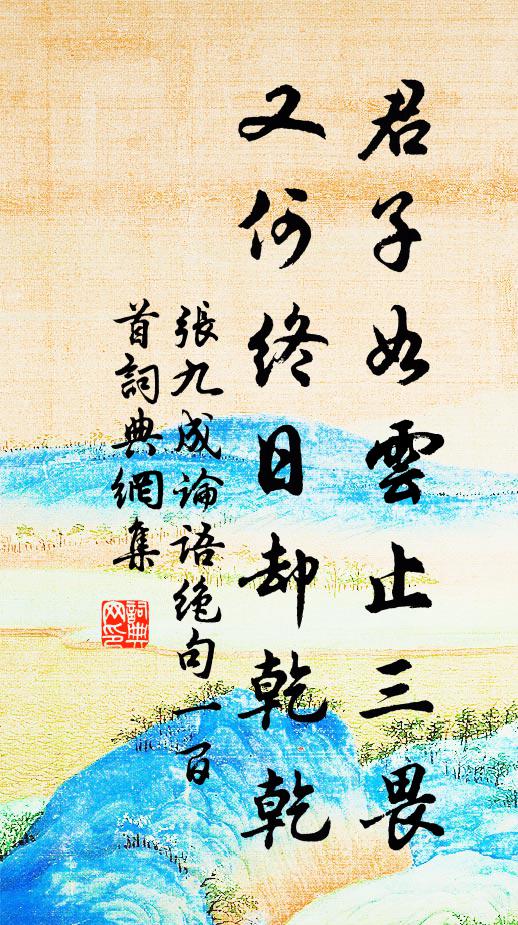 君子如雲止三畏
又何終日却乾乾
張九成論語绝句一百
首詞典網集
詞典網印